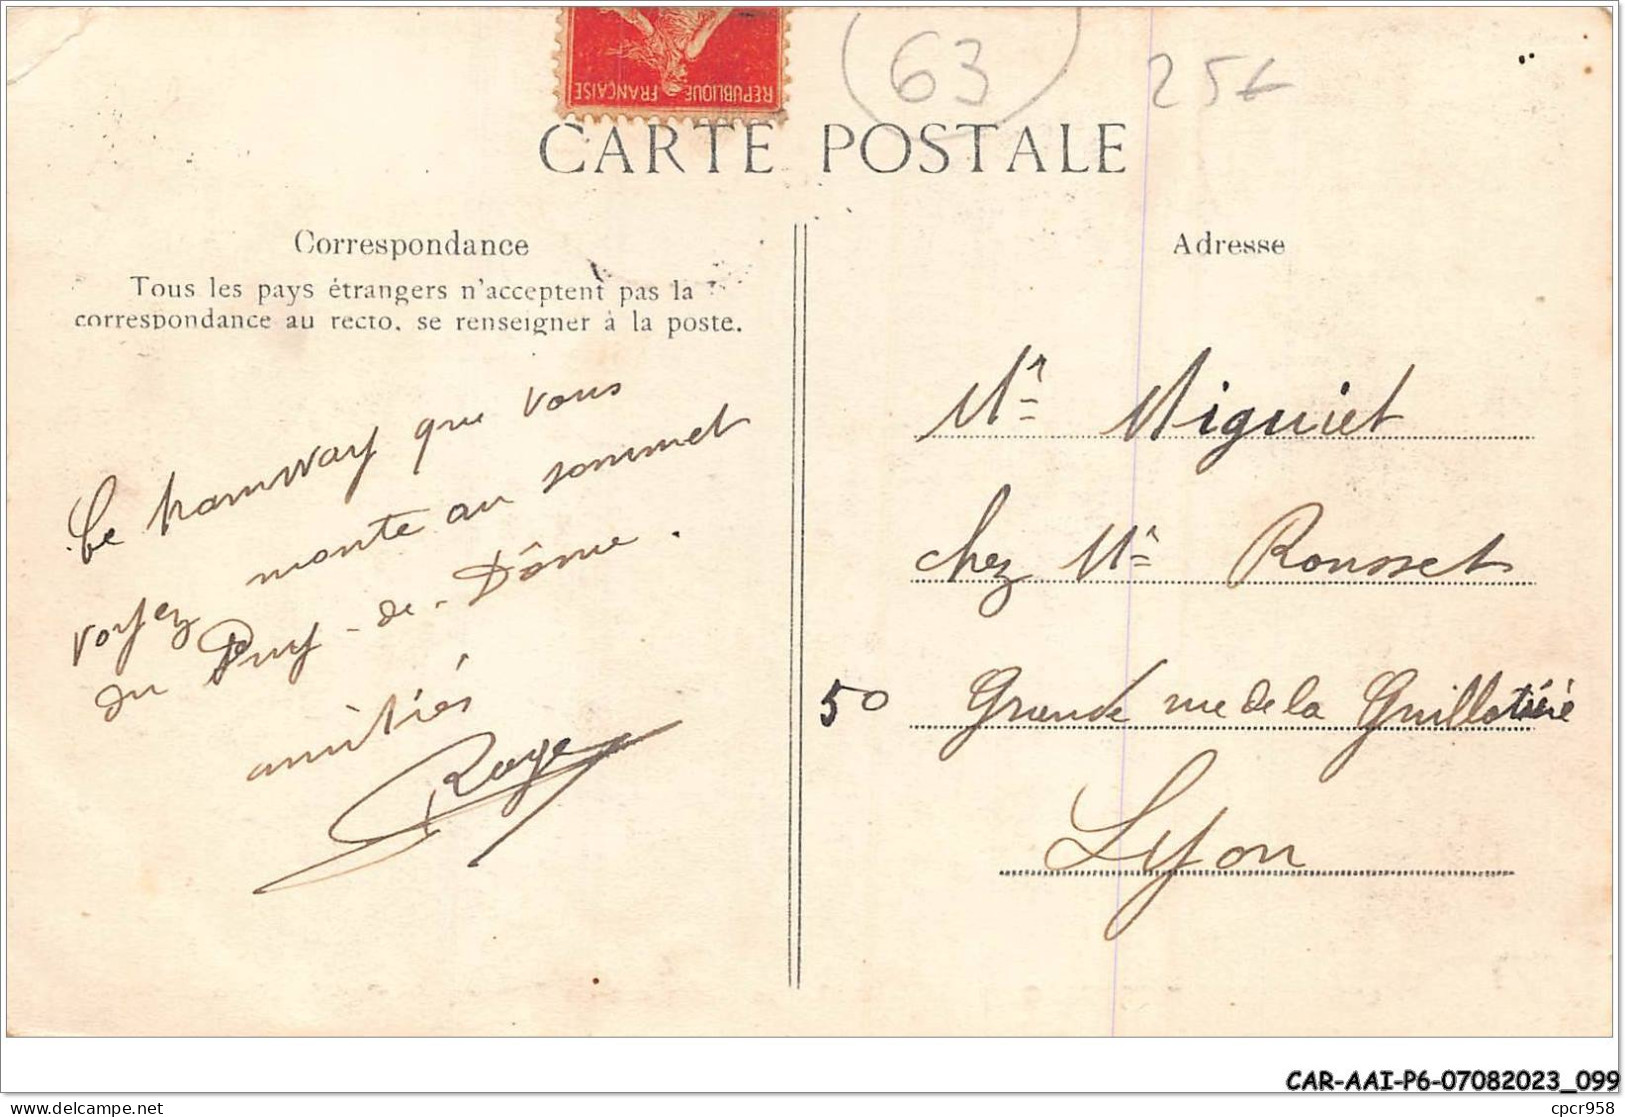 REPUBLIQUE FRANÇAISE
63
25€
CARTE POSTALE
Correspondance
Tous les pays étrangers n'acceptent pas la
correspondance au recto, se renseigner à la poste.
Le tramway que vous
voyez monte au sommet
du Puy-de-Dôme.
amitiés
Roger
Adresse
Mr Miguiet
chez Mr Rousset
50 Grande rue de la Guillotière
Lyon
CAR-AAI-P6-07082023_099
delcampe.net
cpcr958